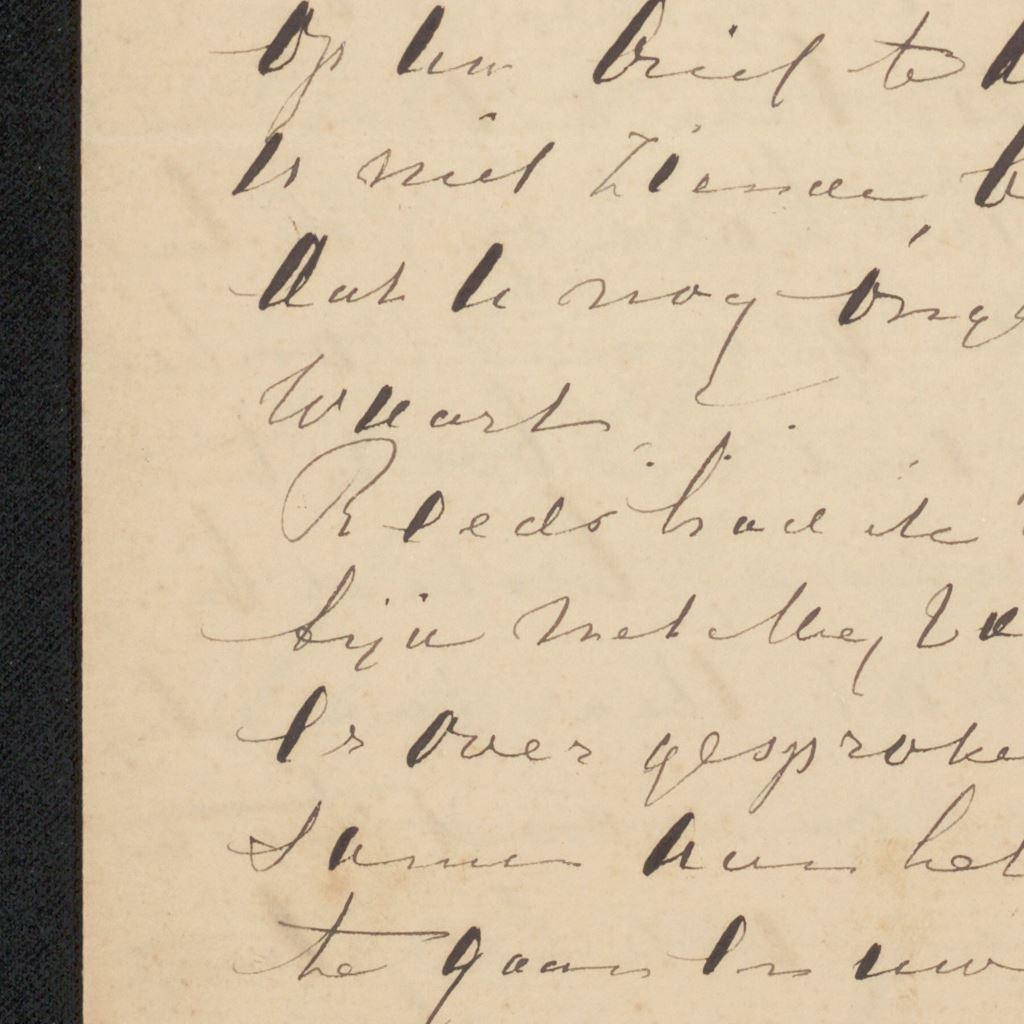 Op uw brief te
U niet ziende, b
dat U nog onge
waart.
Reeds had ik
bijn met Mej. Ve
er over gesproke
samen aan het
te gaan en uw